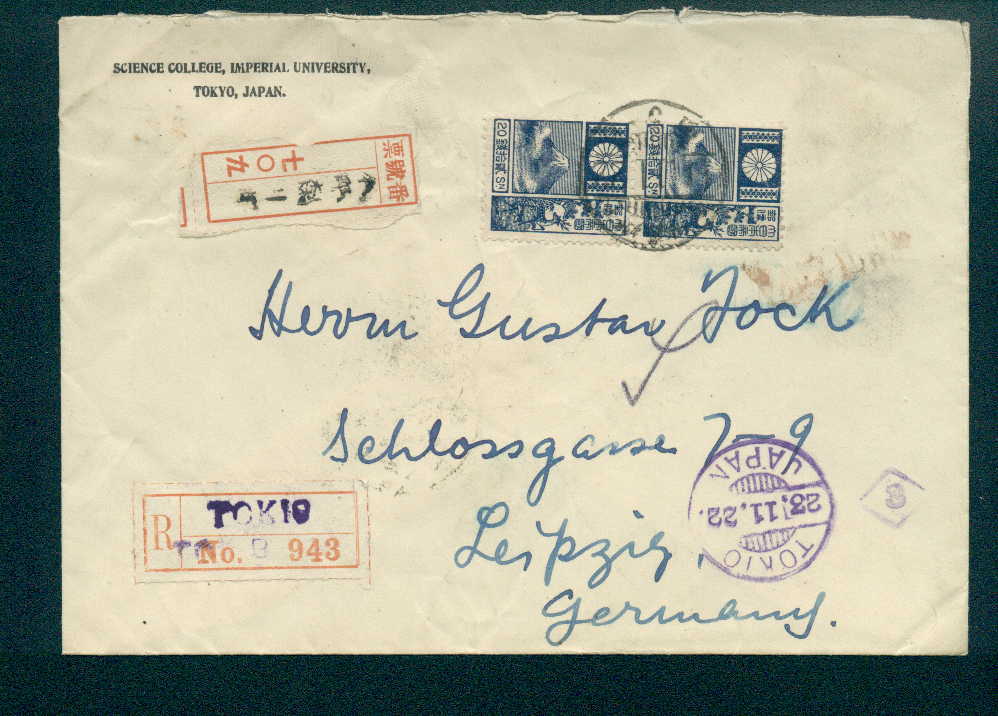 SCIENCE COLLEGE, IMPERIAL UNIVERSITY,
TOKYO, JAPAN.
票號番
七〇九
20 SN
20 SN
Herrn Gustav Fock
Schlossgasse 7-9
Leipzig,
Germany.
R
TOKIO
No. 943
JAPAN
23.11.22.
TOKIO